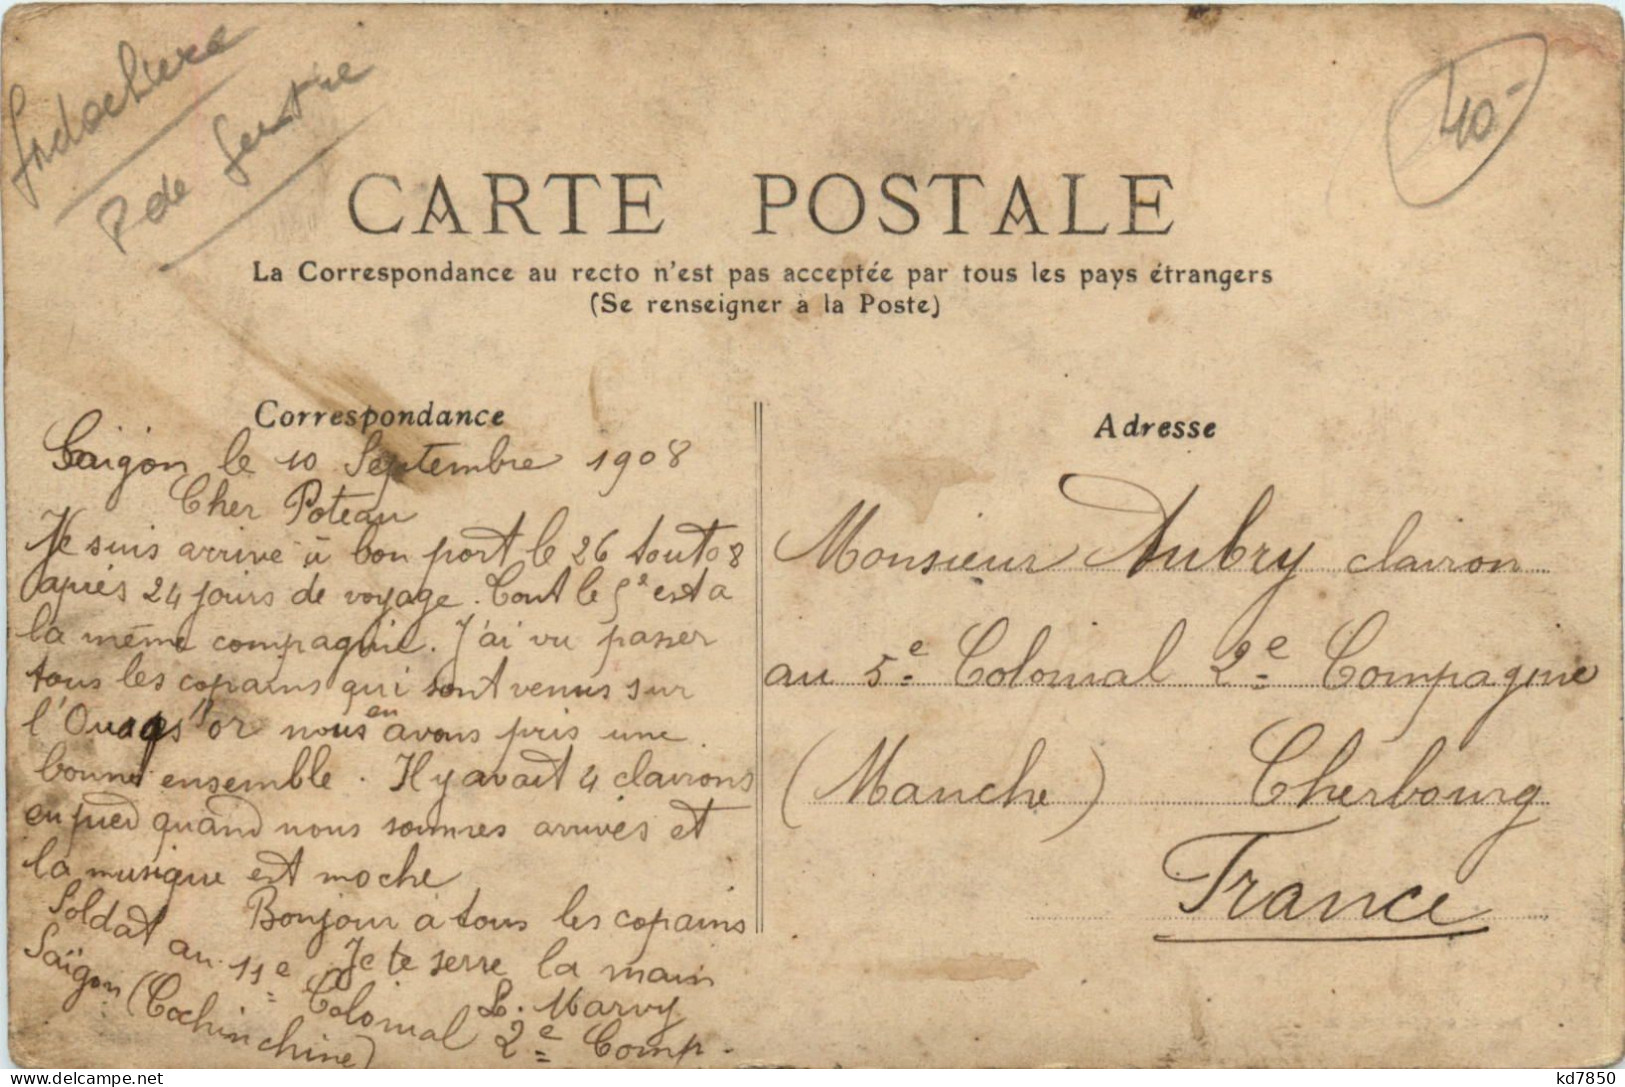 Indochine
P. de
40-
CARTE POSTALE
La Correspondance au recto n'est pas acceptée par tous les pays étrangers
(Se renseigner à la Poste)
Correspondance
Saigon le 10 Septembre 1908
Cher Poteau
Je suis arrivé à bon port le 26 08
après 24 jours de voyage. Tout le est a
la même compagnie. J'ai vu passer
tous les copains qui sont venus sur
l' or nous en avons pris une
bonne ensemble. Il y avait 4 clairons
en pied quand nous sommes arrivés et
la musique est moche
Bonjour à tous les copains
Je te serre la main
L. Marvy
Soldat au 11e Colonial 2e Comp.
Saïgon (Cochinchine)
Adresse
Monsieur Aubry clairon
au 5e Colonial 2e Compagnie
(Manche) Cherbourg
France
kd7850